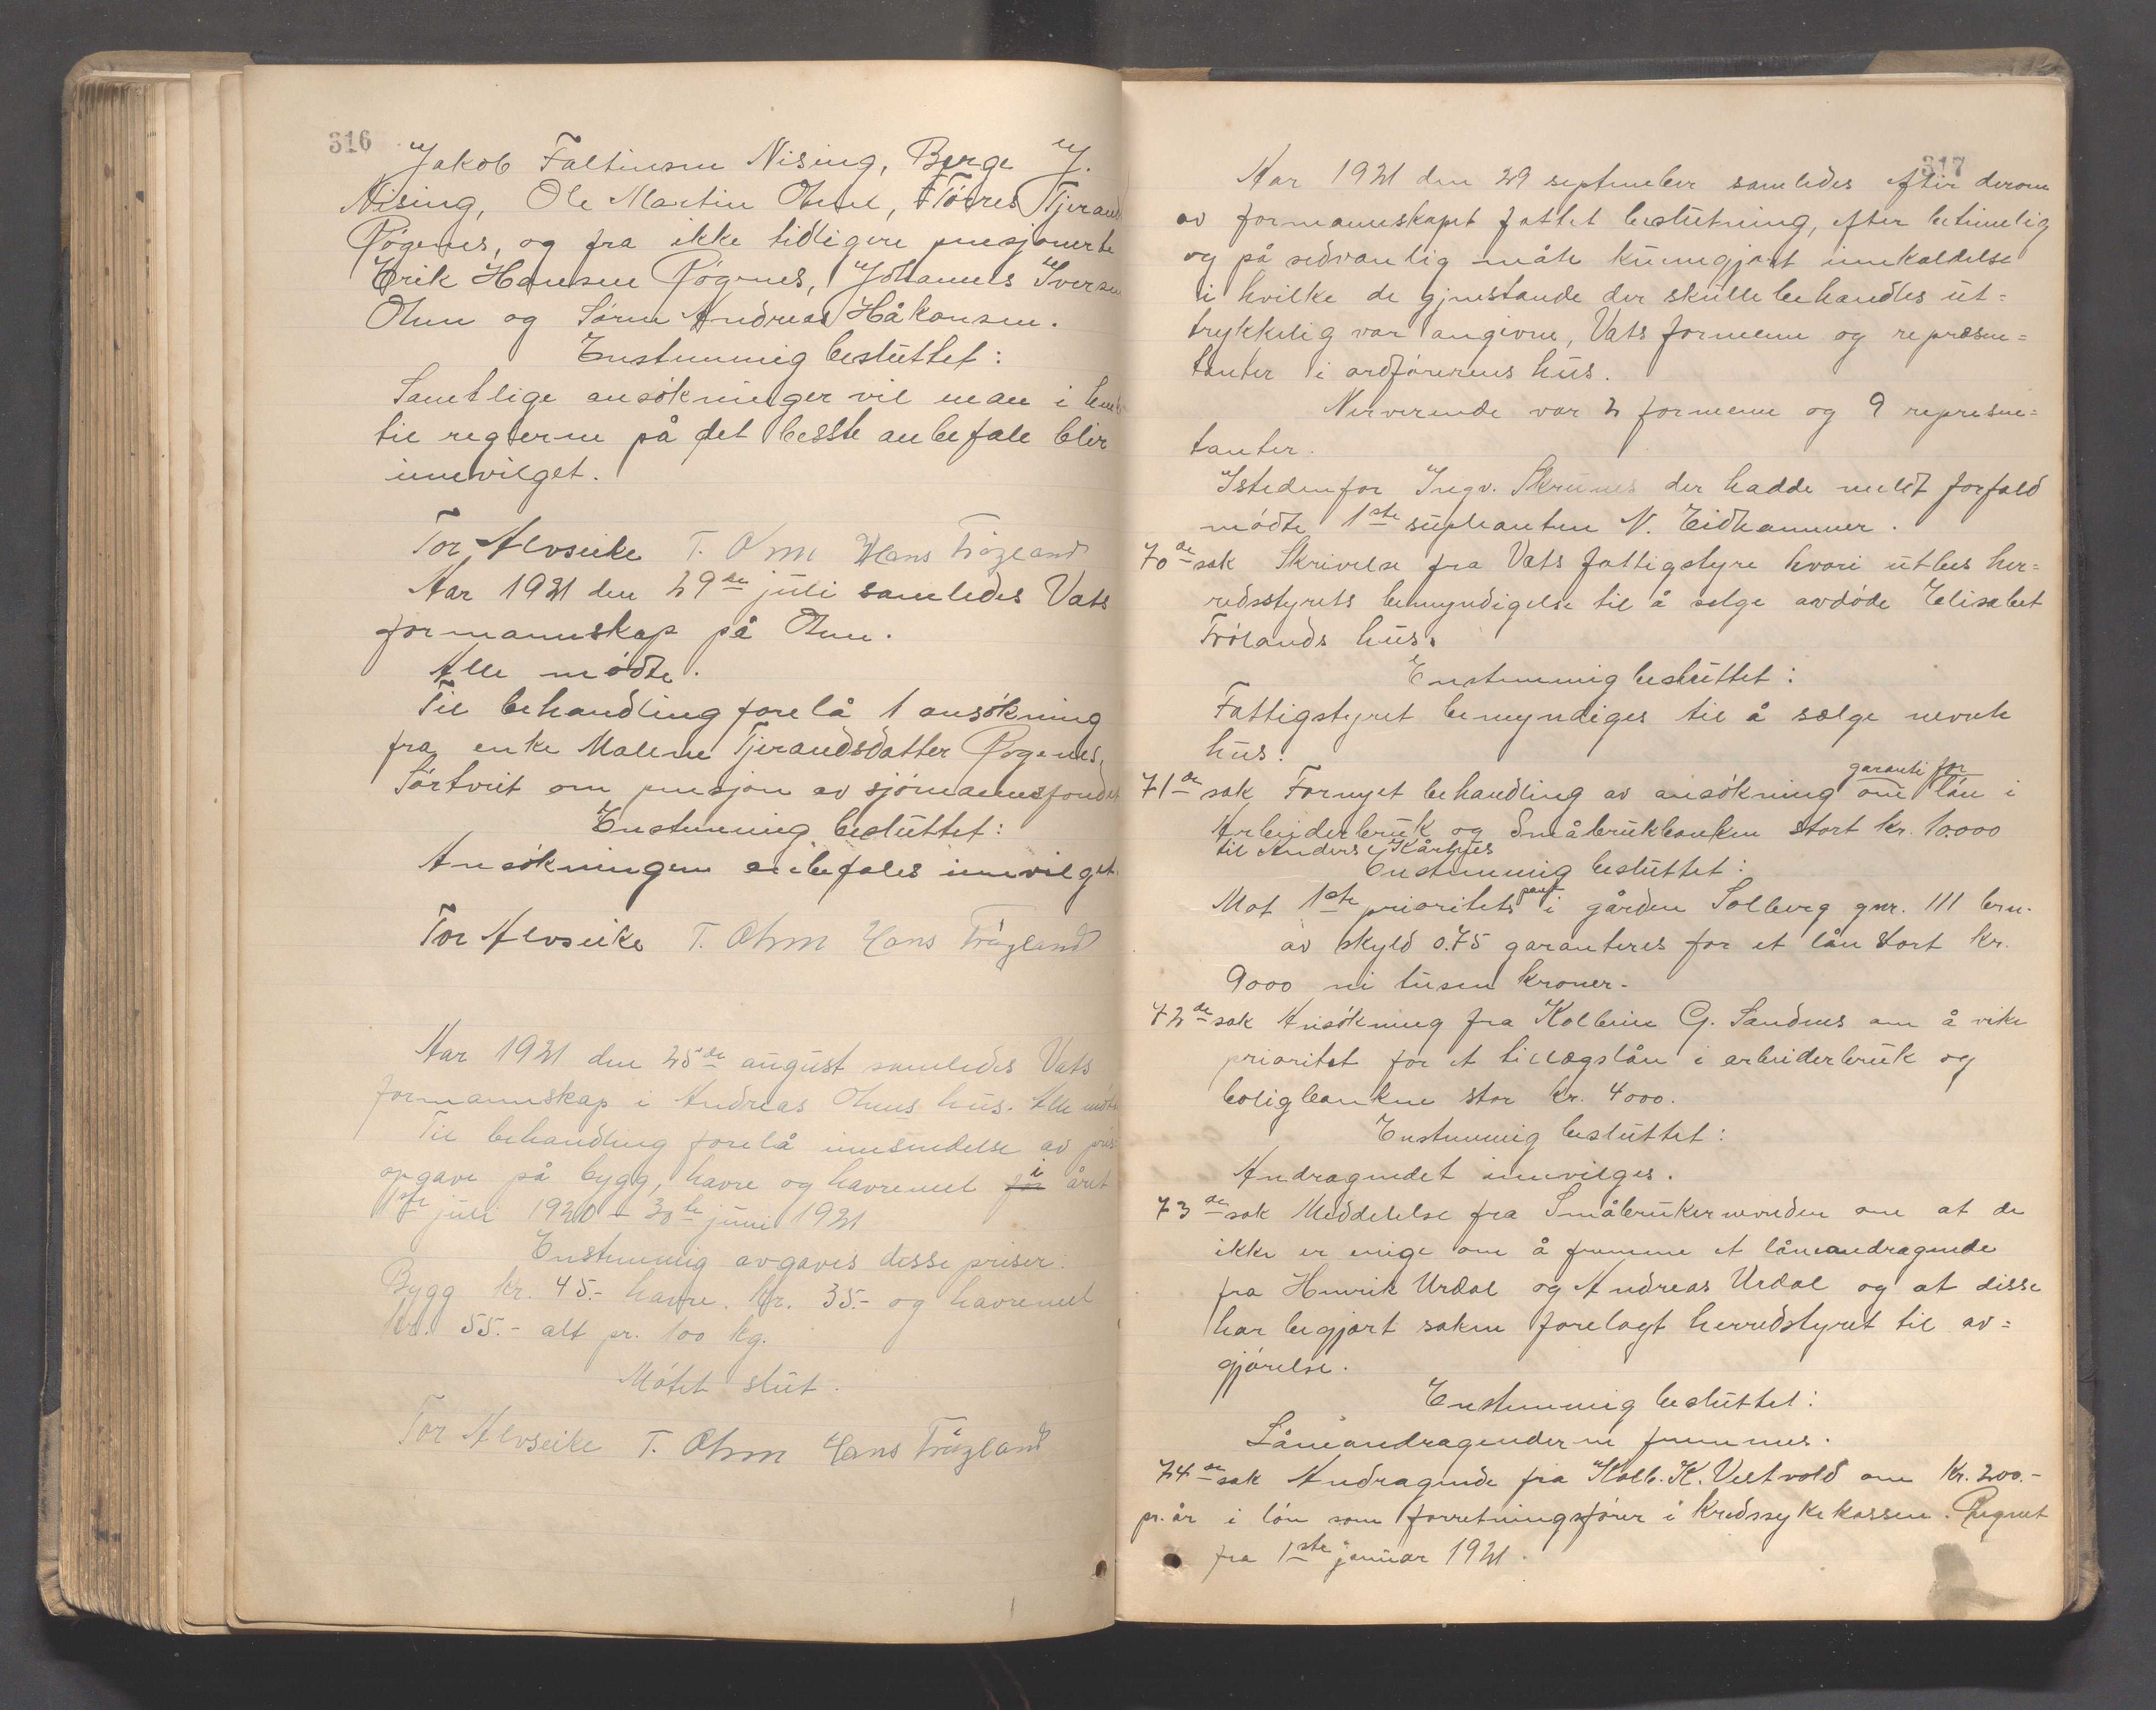 316
Jakob Faltinsen Nising, Børge J.
Nising, Ole Martin Ohne, Tórres Tjerand
Røgenes, og fra ikke tidligere pensjonerte
Erik Hansen Røgenes, Johannes Iversen
Ohne og Sørne Andreas Håkonsen.
Enstemmig besluttet:
Samtlige ansökninger vil man i hen
til reglerne på det besste anbefale blir
innvilget.
Tor Alvseike T. Ohm Hans Frøyland
Aar 1921 den 29de juli samledes Vats
formannskap på Ohne.
Alle mödte.
Til behandling forelå 1 ansökning
fra enke Malene Tjerandsdatter Røgenes,
Sørtveit om pensjon av sjómannsfondet
Enstemmig besluttet:
Ansökningen anbefales innvilget.
Tor Alvseike T. Ohm Hans Frøyland
Aar 1921 den 25de august samledes Vats
formannskap i Andreas Ohnes hus. Alle mödte
Til behandling forelå innsendelse av pris
opgave på bygg, havre og havremel for i året
1ste juli 1920 - 30te juni 1921
Enstemmig avgaves disse priser.
Bygg kr. 45.- havre kr. 35.- og havremel
kr. 55.- alt pr. 100 kg.
Mótet slut.
Tor Alvseike T. Ohm Hans Frøyland
317
Aar 1921 den 29 september samledes efter derom
av formannskapet fattet beslutning, efter betimelig
og på sedvanlig måte kunngjort innkaldelse
i hvilke de gjenstande der skulle behandles ut=
trykkelig var angivne, Vats formenn og represen=
tanter i ordførerens hus.
Nerverende var 2 formenn og 9 represen=
tanter.
Istedenfor Ingv. Skrunes der hadde meldt forfald
mödte 1ste supleanten N. Eidhammer.
70de sak Skrivelse fra Vats fattigstyre hvori utbes her=
redsstyrets bemyndigelse til å selge avdøde Elisabet
Frólands hus.
Enstemmig besluttet:
Fattigstyret bemyndiges til å sælge nevnte
hus.
71de sak Fornyet behandling av ansökning om garanti for lån i
Arbeiderbruk og Småbrukbanken stort kr. 10000
til Anders Kårhus
Enstemmig besluttet:
Mot 1ste prioritets pant i gården Solberg gnr. 111 brn.
av skyld 0.75 garanteres for et lån stort kr.
9000 ni tusen kroner.
72de sak Ansökning fra Kolbein G. Sandnes om å vike
prioritet for et tillægslån i arbeiderbruk og
boligbanken stor kr. 4000.
Enstemmig besluttet:
Andragendet innvilges.
73de sak Meddelelse fra Småbrukernevnden om at de
ikke er enige om å fremme et låneandragende
fra Henrik Urdal og Andreas Urdal og at disse
har begjært saken forelagt herredstyret til av=
gjórelse.
Enstemmig besluttet:
Låneandragenderne fremmes.
74de sak Andragende fra Kolb. K. Vestvold om kr. 200.-
pr. år i lón som forretningsfører i kredssykekassen. Regnet
fra 1ste januar 1921.